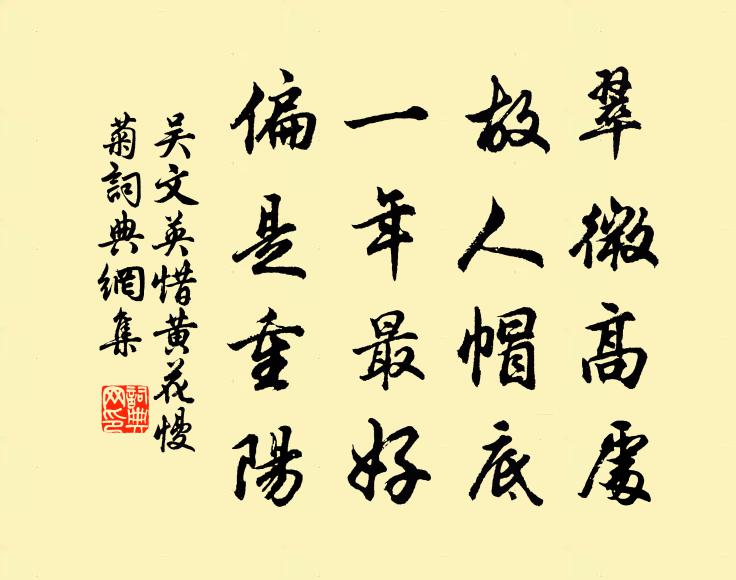 翠微高處
故人帽底
一年最好
偏是重陽
吳文英惜黃花慢
菊詞典網集
詞典网印